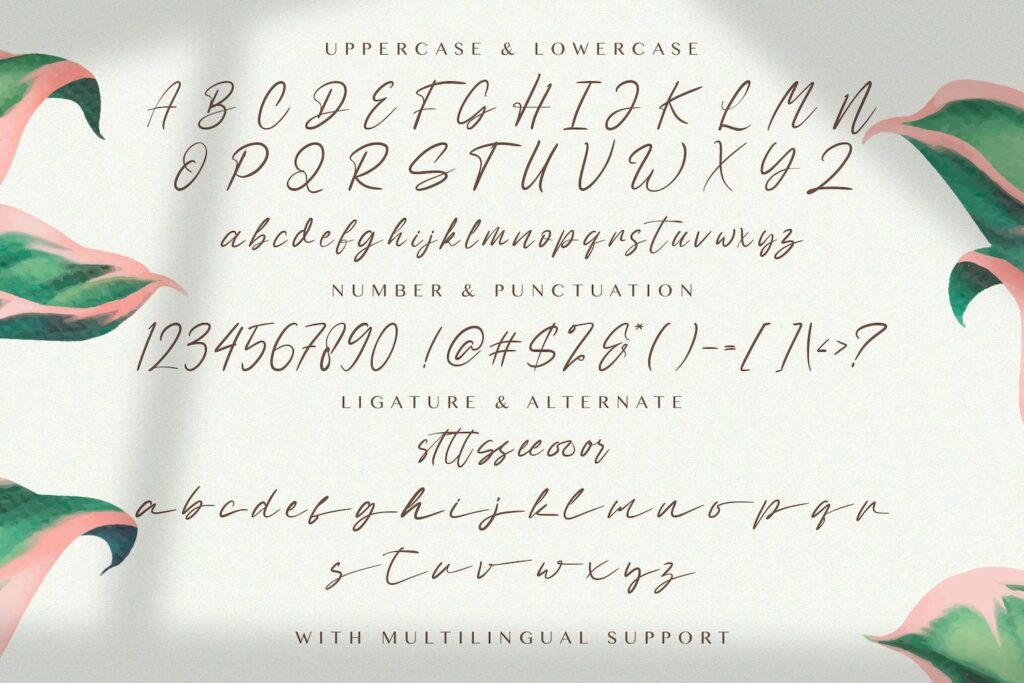 UPPERCASE & LOWERCASE
A B C D E F G H I J K L M N
O P Q R S T U V W X Y Z
abcdefghijklmnopqrstuvwxyz
NUMBER & PUNCTUATION
1234567890 !@#$%&*()--=[]|\<>?
LIGATURE & ALTERNATE
stttsseeooor
abcdefghijklmnopqr
stuvwxyz
WITH MULTILINGUAL SUPPORT